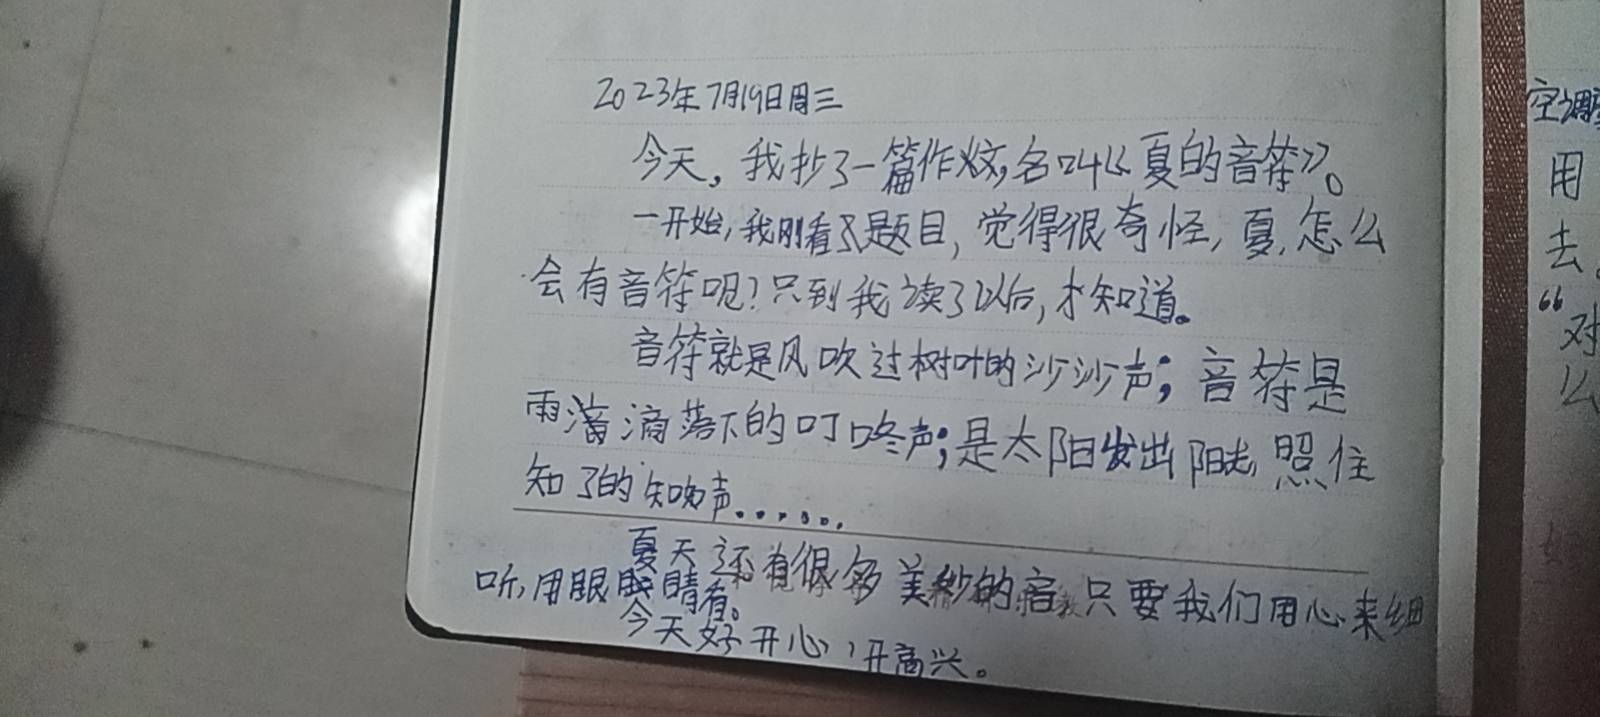 2023年7月19日周三
今天，我抄了一篇作文，名叫《夏的音符》。
一开始，我刚看了题目，觉得很奇怪，夏，怎么
会有音符呢？只到我读了以后，才知道。
音符就是风吹过树叶的沙沙声；音符是
雨滴滴落下的叮咚声；是太阳发出阳光，照住
知了的知知声……
夏天还有很多美妙的音 只要我们用心来细
听，用眼睛看。
今天好开心，开高兴。
空调
用
去。
“对
么